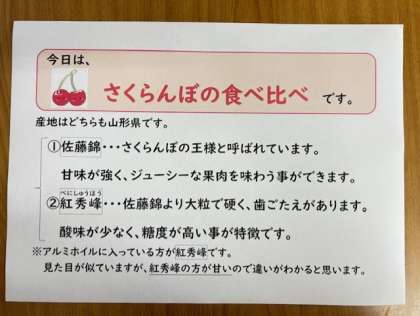 今日は、
さくらんぼの食べ比べ です。
産地はどちらも山形県です。
①佐藤錦･･･さくらんぼの王様と呼ばれています。
甘味が強く、ジューシーな果肉を味わう事ができます。
べにしゅうほう
②紅秀峰･･･佐藤錦より大粒で硬く、歯ごたえがあります。
酸味が少なく、糖度が高い事が特徴です。
※アルミホイルに入っている方が紅秀峰です。
見た目が似ていますが、紅秀峰の方が甘いので違いがわかると思います。